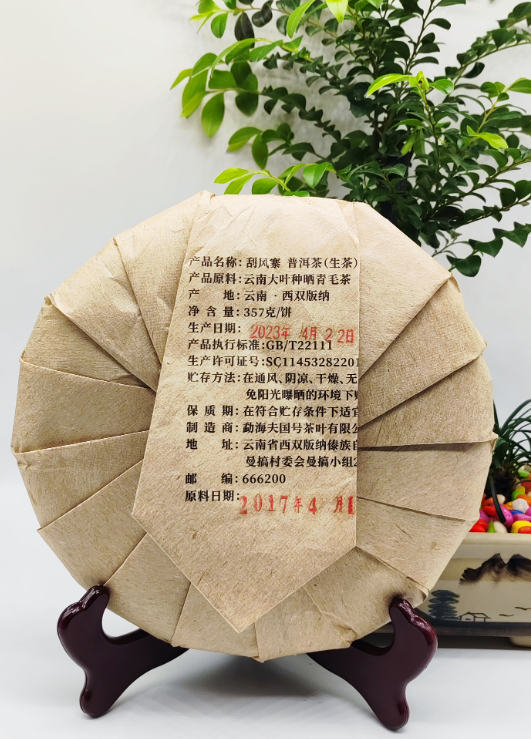 产品名称：刮风寨 普洱茶(生茶)
产品原料：云南大叶种晒青毛茶
产 地：云南·西双版纳
净 含 量：357克/饼
生产日期：2023年 4月22日
产品执行标准：GB/T22111
生产许可证号：SC1145328220
贮存方法：在通风、阴凉、干燥、无
免阳光曝晒的环境下
保 质 期：在符合贮存条件下适
制 造 商：勐海夫国号茶叶有限
地 址：云南省西双版纳傣族
曼搞村委会曼搞小组
邮 编：666200
原料日期：2017年4 月